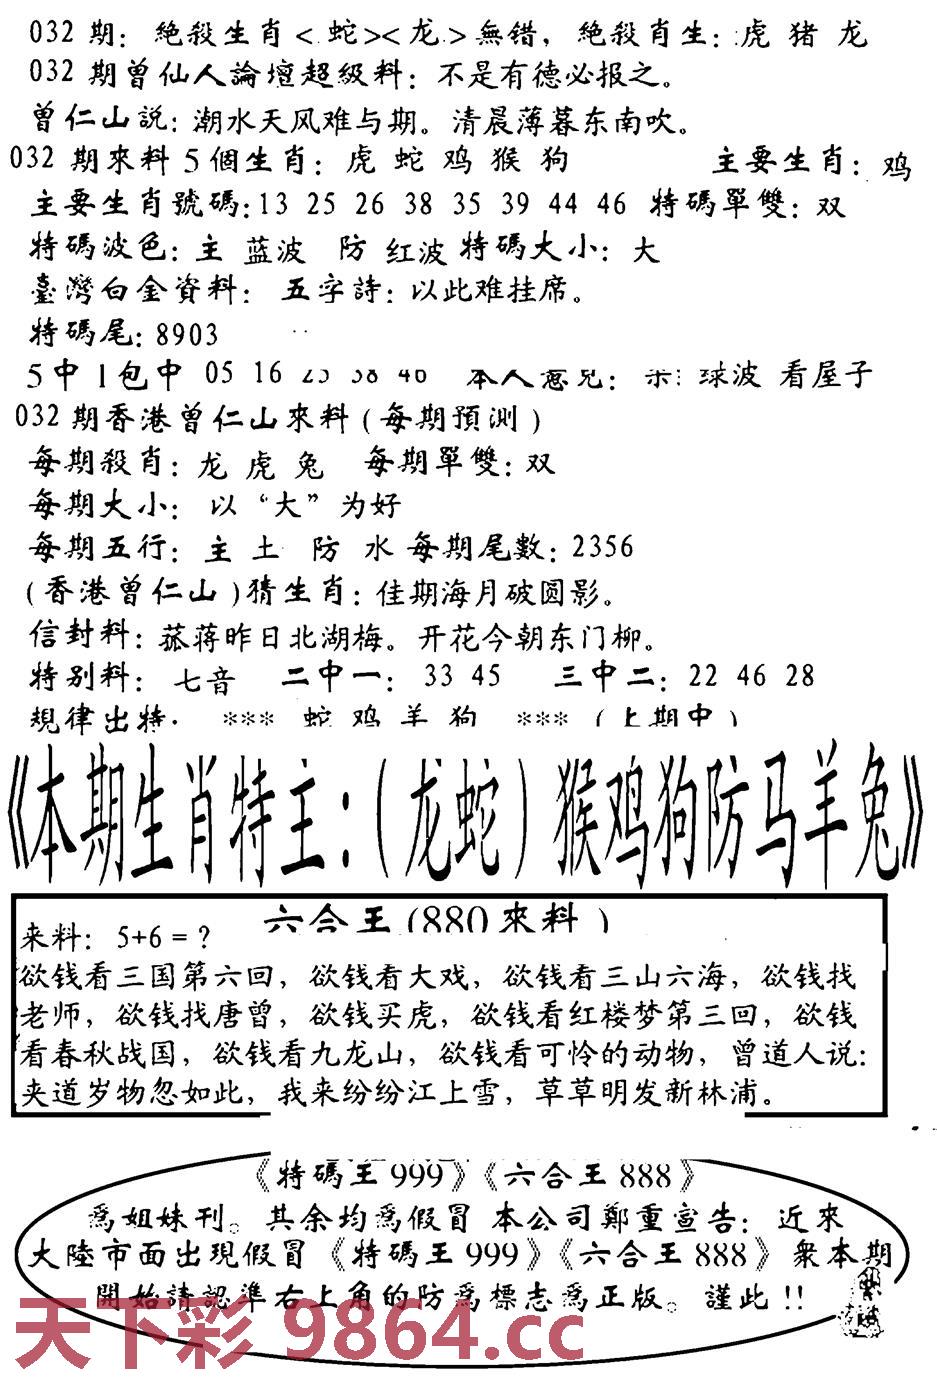 032 期: 絶殺生肖<蛇><龙>無错, 絶殺肖生: 虎 猪 龙
032 期曾仙人論壇超級料: 不是有德必报之。
曾仁山説: 潮水天风难与期。清晨薄暮东南吹。
032 期來料 5 個生肖: 虎 蛇 鸡 猴 狗 主要生肖: 鸡
主要生肖號碼: 13 25 26 38 35 39 44 46 特碼單雙: 双
特碼波色: 主 蓝波 防 红波 特碼大小: 大
臺灣白金資料: 五字詩: 以此难挂席。
特碼尾: 8903
5 中 1 包中 05 16 25 38 46 本人意見: 球波 看屋子
032 期香港曾仁山來料 (每期預測)
每期殺肖: 龙 虎 兔 每期單雙: 双
每期大小: 以 “大” 为好
每期五行: 主 土 防 水 每期尾數: 2356
(香港曾仁山)猜生肖: 佳期海月破圆影。
信封料: 菰蒋昨日北湖梅。开花今朝东门柳。
特别料: 七音 二中一: 33 45 三中二: 22 46 28
規律出特: *** 蛇 鸡 羊 狗 *** (上期中)
《本期生肖特主:(龙蛇)猴鸡狗防马羊兔》
六合王(880 來料)
来料: 5+6=?
欲钱看三国第六回, 欲钱看大戏, 欲钱看三山六海, 欲钱找
老师, 欲钱找唐曾, 欲钱买虎, 欲钱看红楼梦第三回, 欲钱
看春秋战国, 欲钱看九龙山, 欲钱看可怜的动物, 曾道人说:
夹道岁物忽如此, 我来纷纷江上雪, 草草明发新林浦。
《特碼王 999》《六合王 888》
爲姐妹刊。其余均爲假冒 本公司鄭重宣告: 近來
大陸市面出現假冒《特碼王 999》《六合王 888》衆本期
開始請認準右上角的防爲標志爲正版。謹此!!
天下彩 9864.cc